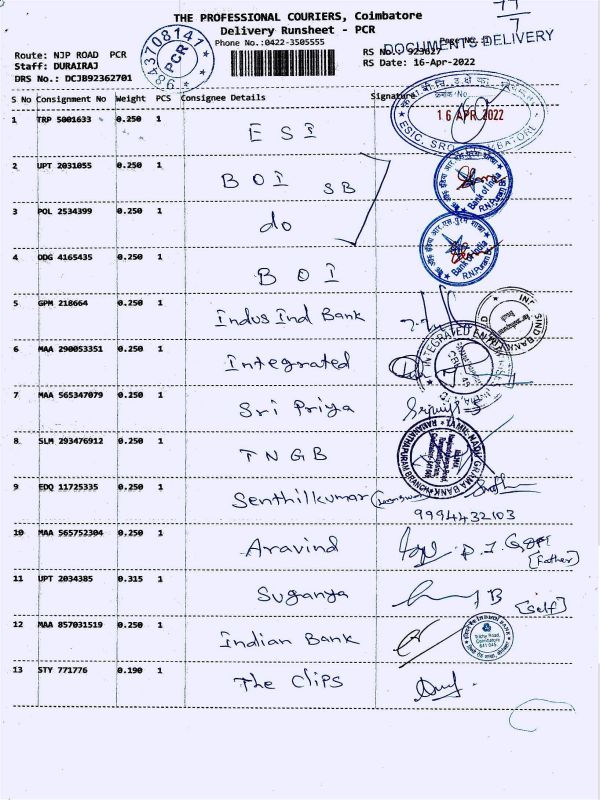 77
7
THE PROFESSIONAL COURIERS, Coimbatore
Delivery Runsheet - PCR
Phone No.:0422-3505555
DOCUMENTS DELIVERY
RS No.: 923627
Route: NJP ROAD PCR
Staff: DURAIRAJ
DRS No.: DCJB92362701
RS Date: 16-Apr-2022
9843708141
PCR
S No Consignment No Weight PCS Consignee Details Signature
1 TRP 5001633 0.250 1 ESI
16 APR 2022
2 UPT 2031055 0.250 1 BOI SB
Bank of India
R.N.Puram Br
3 POL 2534399 0.250 1 do
Bank of India
R.N.Puram Br
4 ODG 4165435 0.250 1 BOI
5 GPM 218664 0.250 1 Indus Ind Bank
6 MAA 290053351 0.250 1 Integrated
INTEGRATED
7 MAA 565347079 0.250 1 Sri Priya
8 SLM 293476912 0.250 1 TNGB
TAMIL NADU GRAMA BANK
RAMANATHAPURAM BRANCH
9 EDQ 11725335 0.250 1 Senthilkumar
9994432103
10 MAA 565752304 0.250 1 Aravind
[Father]
11 UPT 2034385 0.315 1 Suganya
[self]
12 MAA 857031519 0.250 1 Indian Bank
INDIAN BANK
Trichy Road,
Coimbatore
641 045
13 STY 771776 0.190 1 The Clips